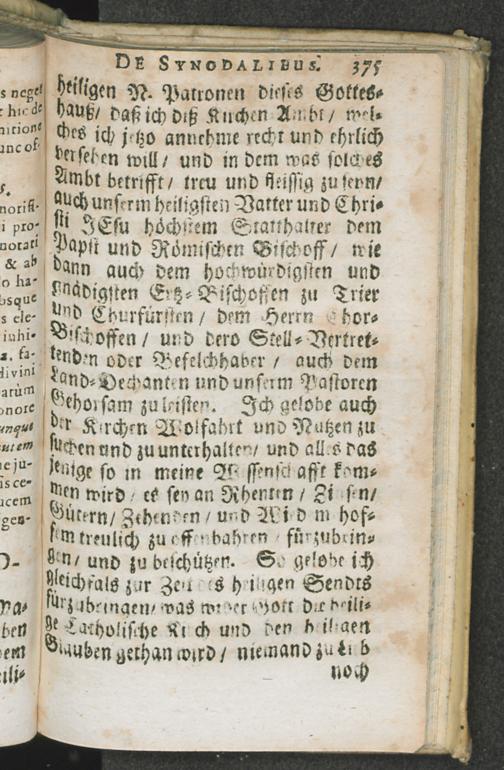 DE SYNODALIBUS. 375
heiligen N. Patronen dieses Gottes-
hauß/ daß ich diß Kirchen Ambt/ wel-
ches ich jetzo annehme recht und ehrlich
versehen will/ und in dem was solches
Ambt betrifft/ treu und fleissig zu seyn/
auch unserm heiligsten Vatter und Chri-
sti JEsu höchstem Statthalter dem
Papst und Römischen Bischoff/ wie
dann auch dem hochwürdigsten und
gnädigsten Ertz-Bischoffen zu Trier
und Churfürsten/ dem Herrn Chor-
Bischoffen/ und dero Stell-Vertret-
tenden oder Befelchhaber/ auch dem
Land-Dechanten und unserm Pastoren
Gehorsam zu leisten. Ich gelobe auch
der Kirchen Wolfahrt und Nutzen zu
suchen und zu unterhalten/ und alles das
jenige so in meine Wissenschafft kom-
men wird/ es sey an Rhenten/ Zinsen/
Gütern/ Zehenden/ und hof-
fem treulich zu offenbahren fürzubrin-
gen/ und zu beschützen. So gelobe ich
gleichfals zur Zeit des heiligen Sendts
fürzubringen/ was wider Gott die heili-
ge Catholische Kirch und den heiligen
Glauben gethan wird/ niemand zu Lieb
noch
s neget
hic de
nitione
unc of-
norifi-
i pro-
norati
& ab
o ha-
bsque
s ele-
iuhi-
fa-
divini
arùm
onore
unque
autem
ne ju-
is ce-
ucem
igen-
O-
ben
em
eili-